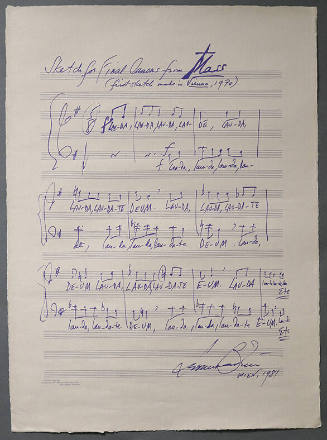 Sketch for Final Canons from Mass
(first sketch made in Vienna, 1970)
LAU-DA, LAU-DA, LAU-DA, LAU- DE, LAU-DA,
f Lau-da, lau-da, lau-da, lau-
LAU-DA, LAU-DA-TE DE-UM LAU-DA, LAU-DA, LAU-DA-TE
da, lau-da, lau-da, lau-da-te DE-UM lau-da,
DE-UM LAU-DA, LAU-DA, LAU-DA-TE E-UM, LAU-DA,
Etc
lau-da, lau-da-te DE-UM, lau-da, lau-da, lau-da-te E-UM
Etc
Wien, 1981